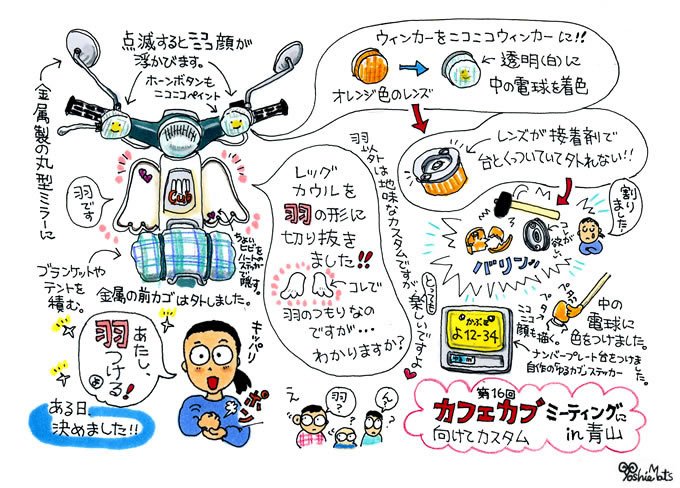 点滅するとニコニコ顔が
浮かびます。
ホーンボタンも
ニコニコペイント
金属製の丸型ミラーに
ウィンカーをニコニコウィンカーに!!
オレンジ色のレンズ
透明(白)に
中の電球を着色
レンズが接着剤で
台とくっついていて外れない!!
割りました
コレが欲しい
バリンッ
羽です
Cub
レッグ
カウルを
羽の形に
切り抜き
ました!!
コレで
羽のつもりなの
ですが…
わかりますか?
羽以外は地味なカスタムですが、
とっても楽しいですよ
ブランケットや
テントを
積む。
金属の前カゴは外しました。
かぶ
よ12-34
ニコニコ
顔も描く。
ペタ
ペタ
中の
電球に
色をつけました。
ナンバープレート台をつけました
自作のゆるカブステッカー
あたし、
羽
つける!
キッパリ
ポン
ある日
決めました!!
え
羽?
ん?
第16回
カフェカブミーティングに
向けてカスタム in青山
YoshieMats